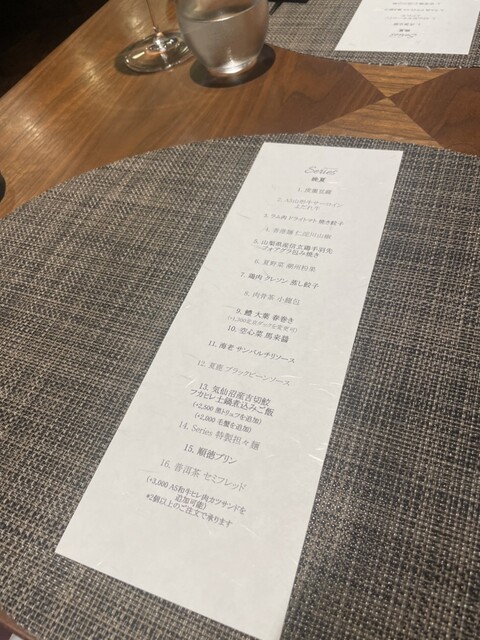 Series
晩夏
1. 燻醤豆腐
2. A5山形牛サーロイン
よだれ
3. ラム肉 ドライトマト 焼き餃子
仁淀川山椒
5. 山梨県産信玄鶏手羽先
フォアグラ包み焼き
6. 夏野菜 潮州
7. 鶏肉 クレソン 蒸し餃子
8. 肉骨茶 小籠包
9. 鱧 大葉 春巻き
10. 空心菜 馬来醤
11. 海老 サンバルチリソース
12. 夏鹿 ブラックビーンソース
13. 気仙沼産吉切鮫
フカヒレ土鍋煮込みご飯
(+2,500 黒トリュフを追加)
(+2,000 毛蟹を追加)
14. Series 特製担々麺
15. 順徳プリン
16. 普洱茶 セミフレッド
(+3,000 A5和牛ヒレ肉カツサンドを
追加可能)
*2個以上のご注文で承ります